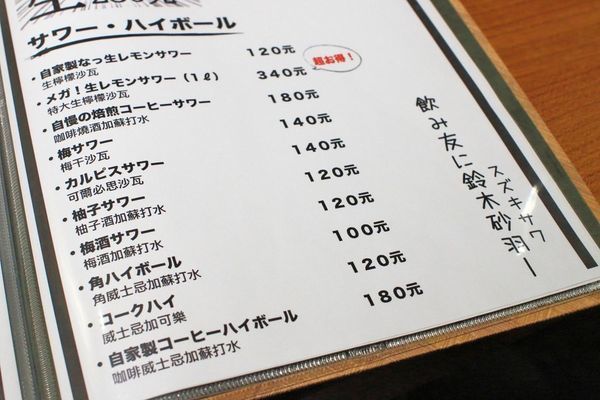 サワー・ハイボール
・自家製なっ生レモンサワー 120元
生檸檬沙瓦
・メガ!生レモンサワー(1ℓ) 340元 超お得!
特大生檸檬沙瓦
・自慢の焙煎コーヒーサワー 180元
咖啡燒酒加蘇打水
・梅サワー 140元
梅干沙瓦
・カルピスサワー 140元
可爾必思沙瓦
・柚子サワー 120元
柚子酒加蘇打水
・梅酒サワー 120元
梅酒加蘇打水
・角ハイボール 100元
角威士忌加蘇打水
・コークハイ 120元
威士忌加可樂
・自家製コーヒーハイボール 180元
咖啡威士忌加蘇打水
スズキサワ
飲み友に鈴木砂羽ー